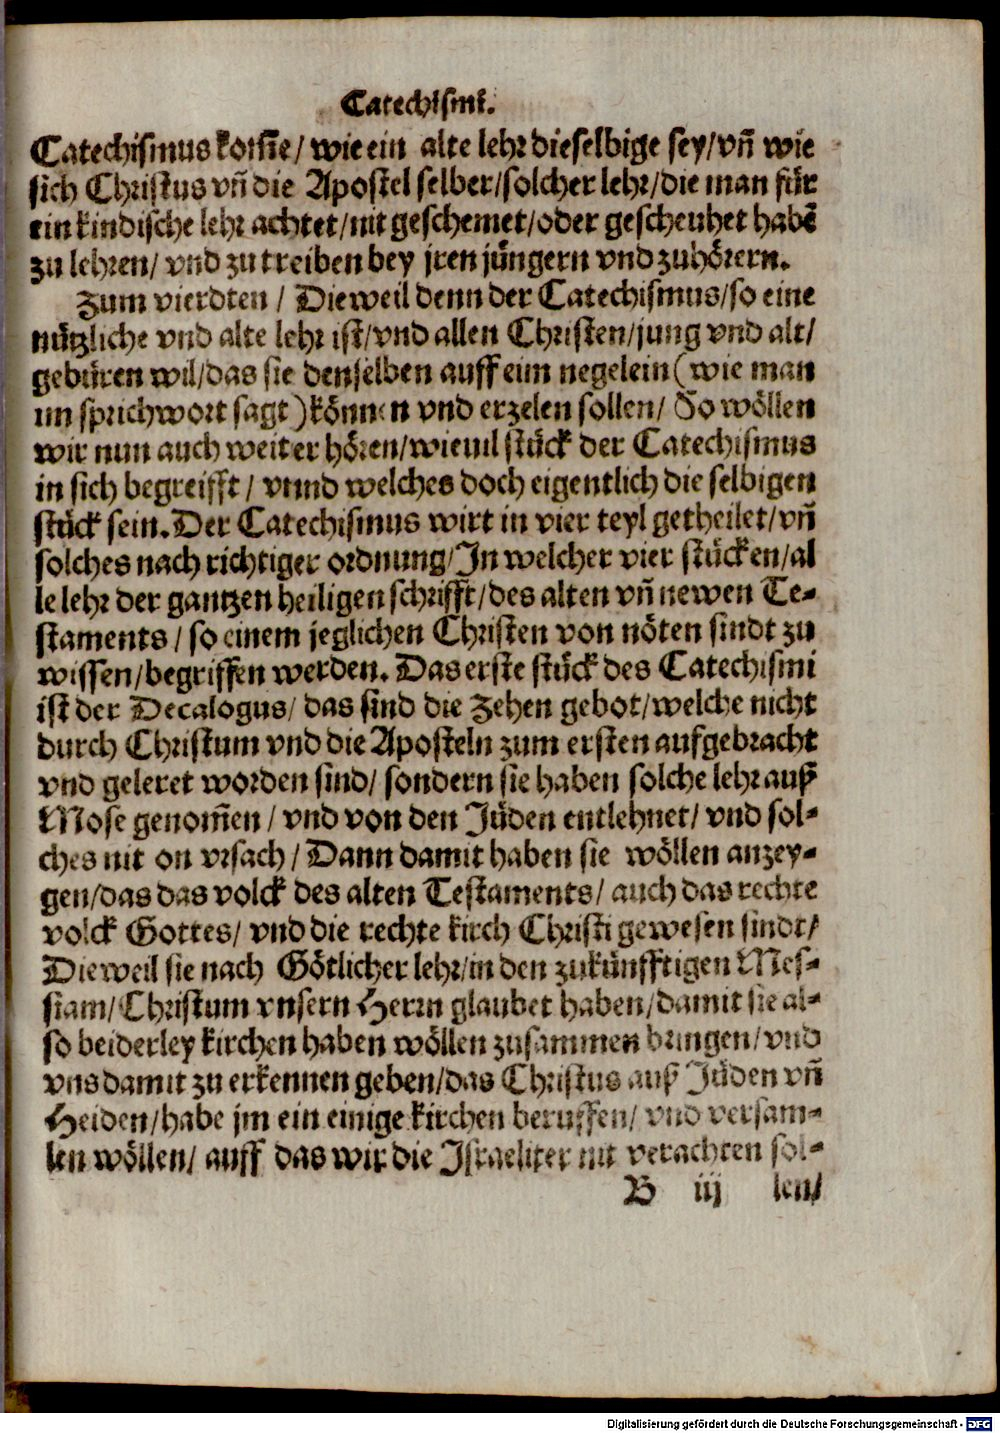 Catechismi.
Catechismus kom̃e/ wie ein alte lehr dieselbige sey/vñ wie
sich Christus vñ die Apostel selber/solcher lehr/die man für
ein kindische lehr achtet/nit geschemet/oder gescheuhet habẽ
zu lehren/ vnd zu treiben bey jren jüngern vnd zuhörern.
Zum vierdten / Dieweil denn der Catechismus/so eine
nützliche vnd alte lehr ist/vnd allen Christen/jung vnd alt/
gebüren wil/das sie denselben auff eim negelein (wie man
im sprichwort sagt) können vnd erzelen sollen/ So wöllen
wir nun auch weiter hören/wieuil stück der Catechismus
in sich begreifft / vnnd welches doch eigentlich die selbigen
stück sein. Der Catechismus wirt in vier teyl getheilet/vñ
solches nach richtiger ordnung/In welcher vier stücken/al
le lehr der gantzen heiligen schrifft/des alten vñ newen Te-
staments / so einem jeglichen Christen von nöten sindt zu
wissen/begriffen werden. Das erste stück des Catechismi
ist der Decalogus/ das sind die Zehen gebot/welche nicht
durch Christum vnd die Aposteln zum ersten aufgebracht
vnd geleret worden sind/ sondern sie haben solche lehr auß
Mose genom̃en / vnd von den Jüden entlehnet/ vnd sol-
ches nit on vrsach / Dann damit haben sie wöllen anzey-
gen/das das volck des alten Testaments/ auch das rechte
volck Gottes/ vnd die rechte kirch Christi gewesen sindt/
Dieweil sie nach Götlicher lehr/in den zukünfftigen Mes-
siam/Christum vnsern Herrn glaubet haben/damit sie al-
so beiderley kirchen haben wöllen zusammen bringen/vnd
vns damit zu erkennen geben/das Christus auß Jüden vñ
Heiden/habe jm ein einige kirchen beruffen/ vnd versam-
len wöllen/ auff das wir die Israeliter nit verachten sol-
B iij len/
Digitalisierung gefördert durch die Deutsche Forschungsgemeinschaft - DFG